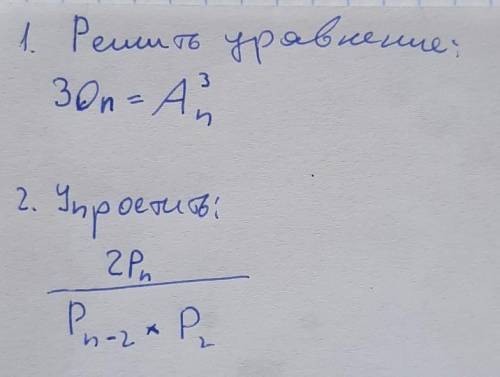 1. Решить уравнение:
30n = A³ₙ
2. Упростить:
2Pₙ
Pₙ₋₂ × P₂